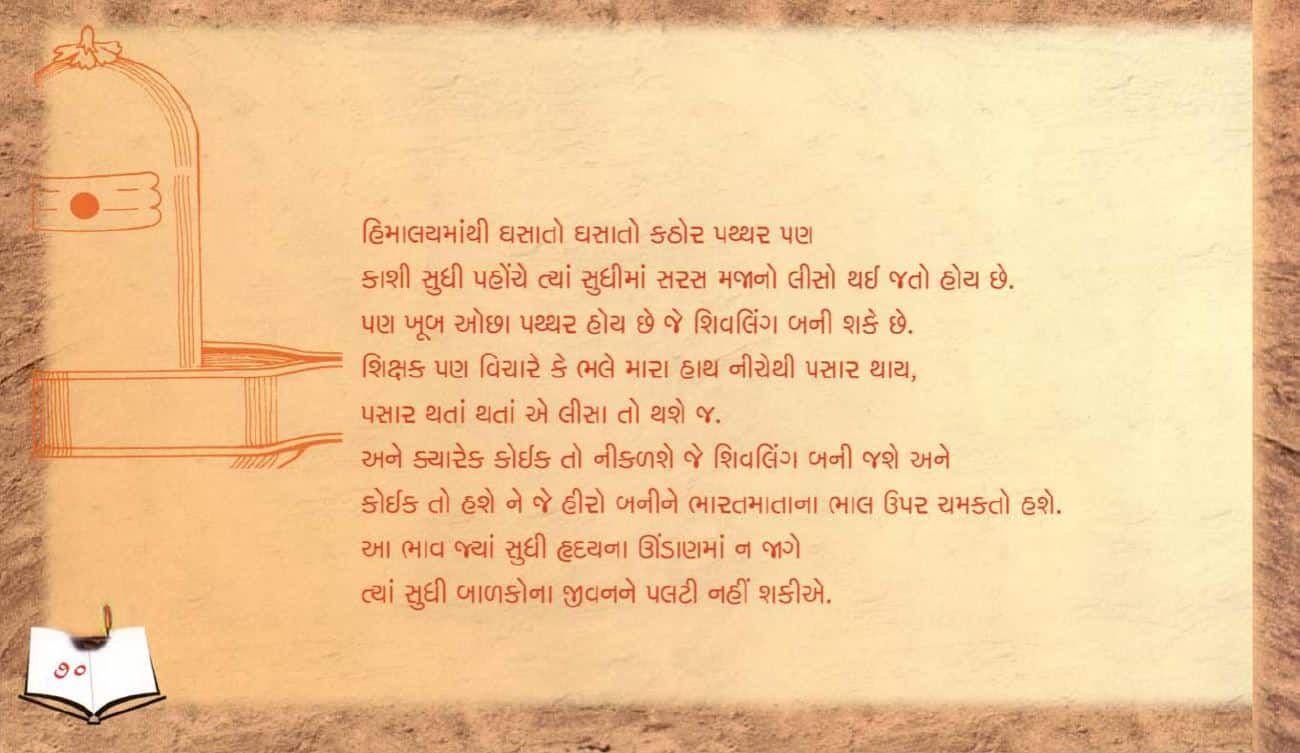 હિમાલયમાંથી ઘસાતો ઘસાતો કઠોર પથ્થર પણ
કાશી સુધી પહોંચે ત્યાં સુધીમાં સરસ મજાનો લીસો થઈ જતો હોય છે.
પણ ખૂબ ઓછા પથ્થર હોય છે જે શિવલિંગ બની શકે છે.
શિક્ષક પણ વિચારે કે ભલે મારા હાથ નીચેથી પસાર થાય,
પસાર થતાં થતાં એ લીસા તો થશે જ.
અને ક્યારેક કોઈક તો નીકળશે જે શિવલિંગ બની જશે અને
કોઈક તો હશે ને જે હીરો બનીને ભારતમાતાના ભાલ ઉપર ચમકતો હશે.
આ ભાવ જ્યાં સુધી હૃદયના ઊંડાણમાં ન જાગે
ત્યાં સુધી બાળકોના જીવનને પલટી નહીં શકીએ.
૭૦